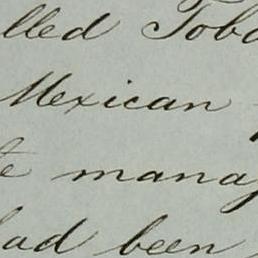 lled Toba
Mexican
te manag
had been